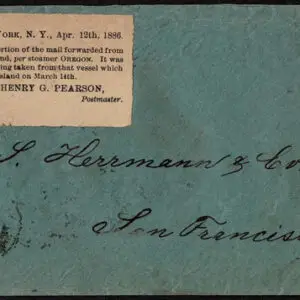 York, N. Y., Apr. 12th, 1886.
ortion of the mail forwarded from
nd, per steamer OREGON. It was
ing taken from that vessel which
sland on March 14th.
HENRY G. PEARSON,
Postmaster.
S. Herrmann & Co
San Francisc